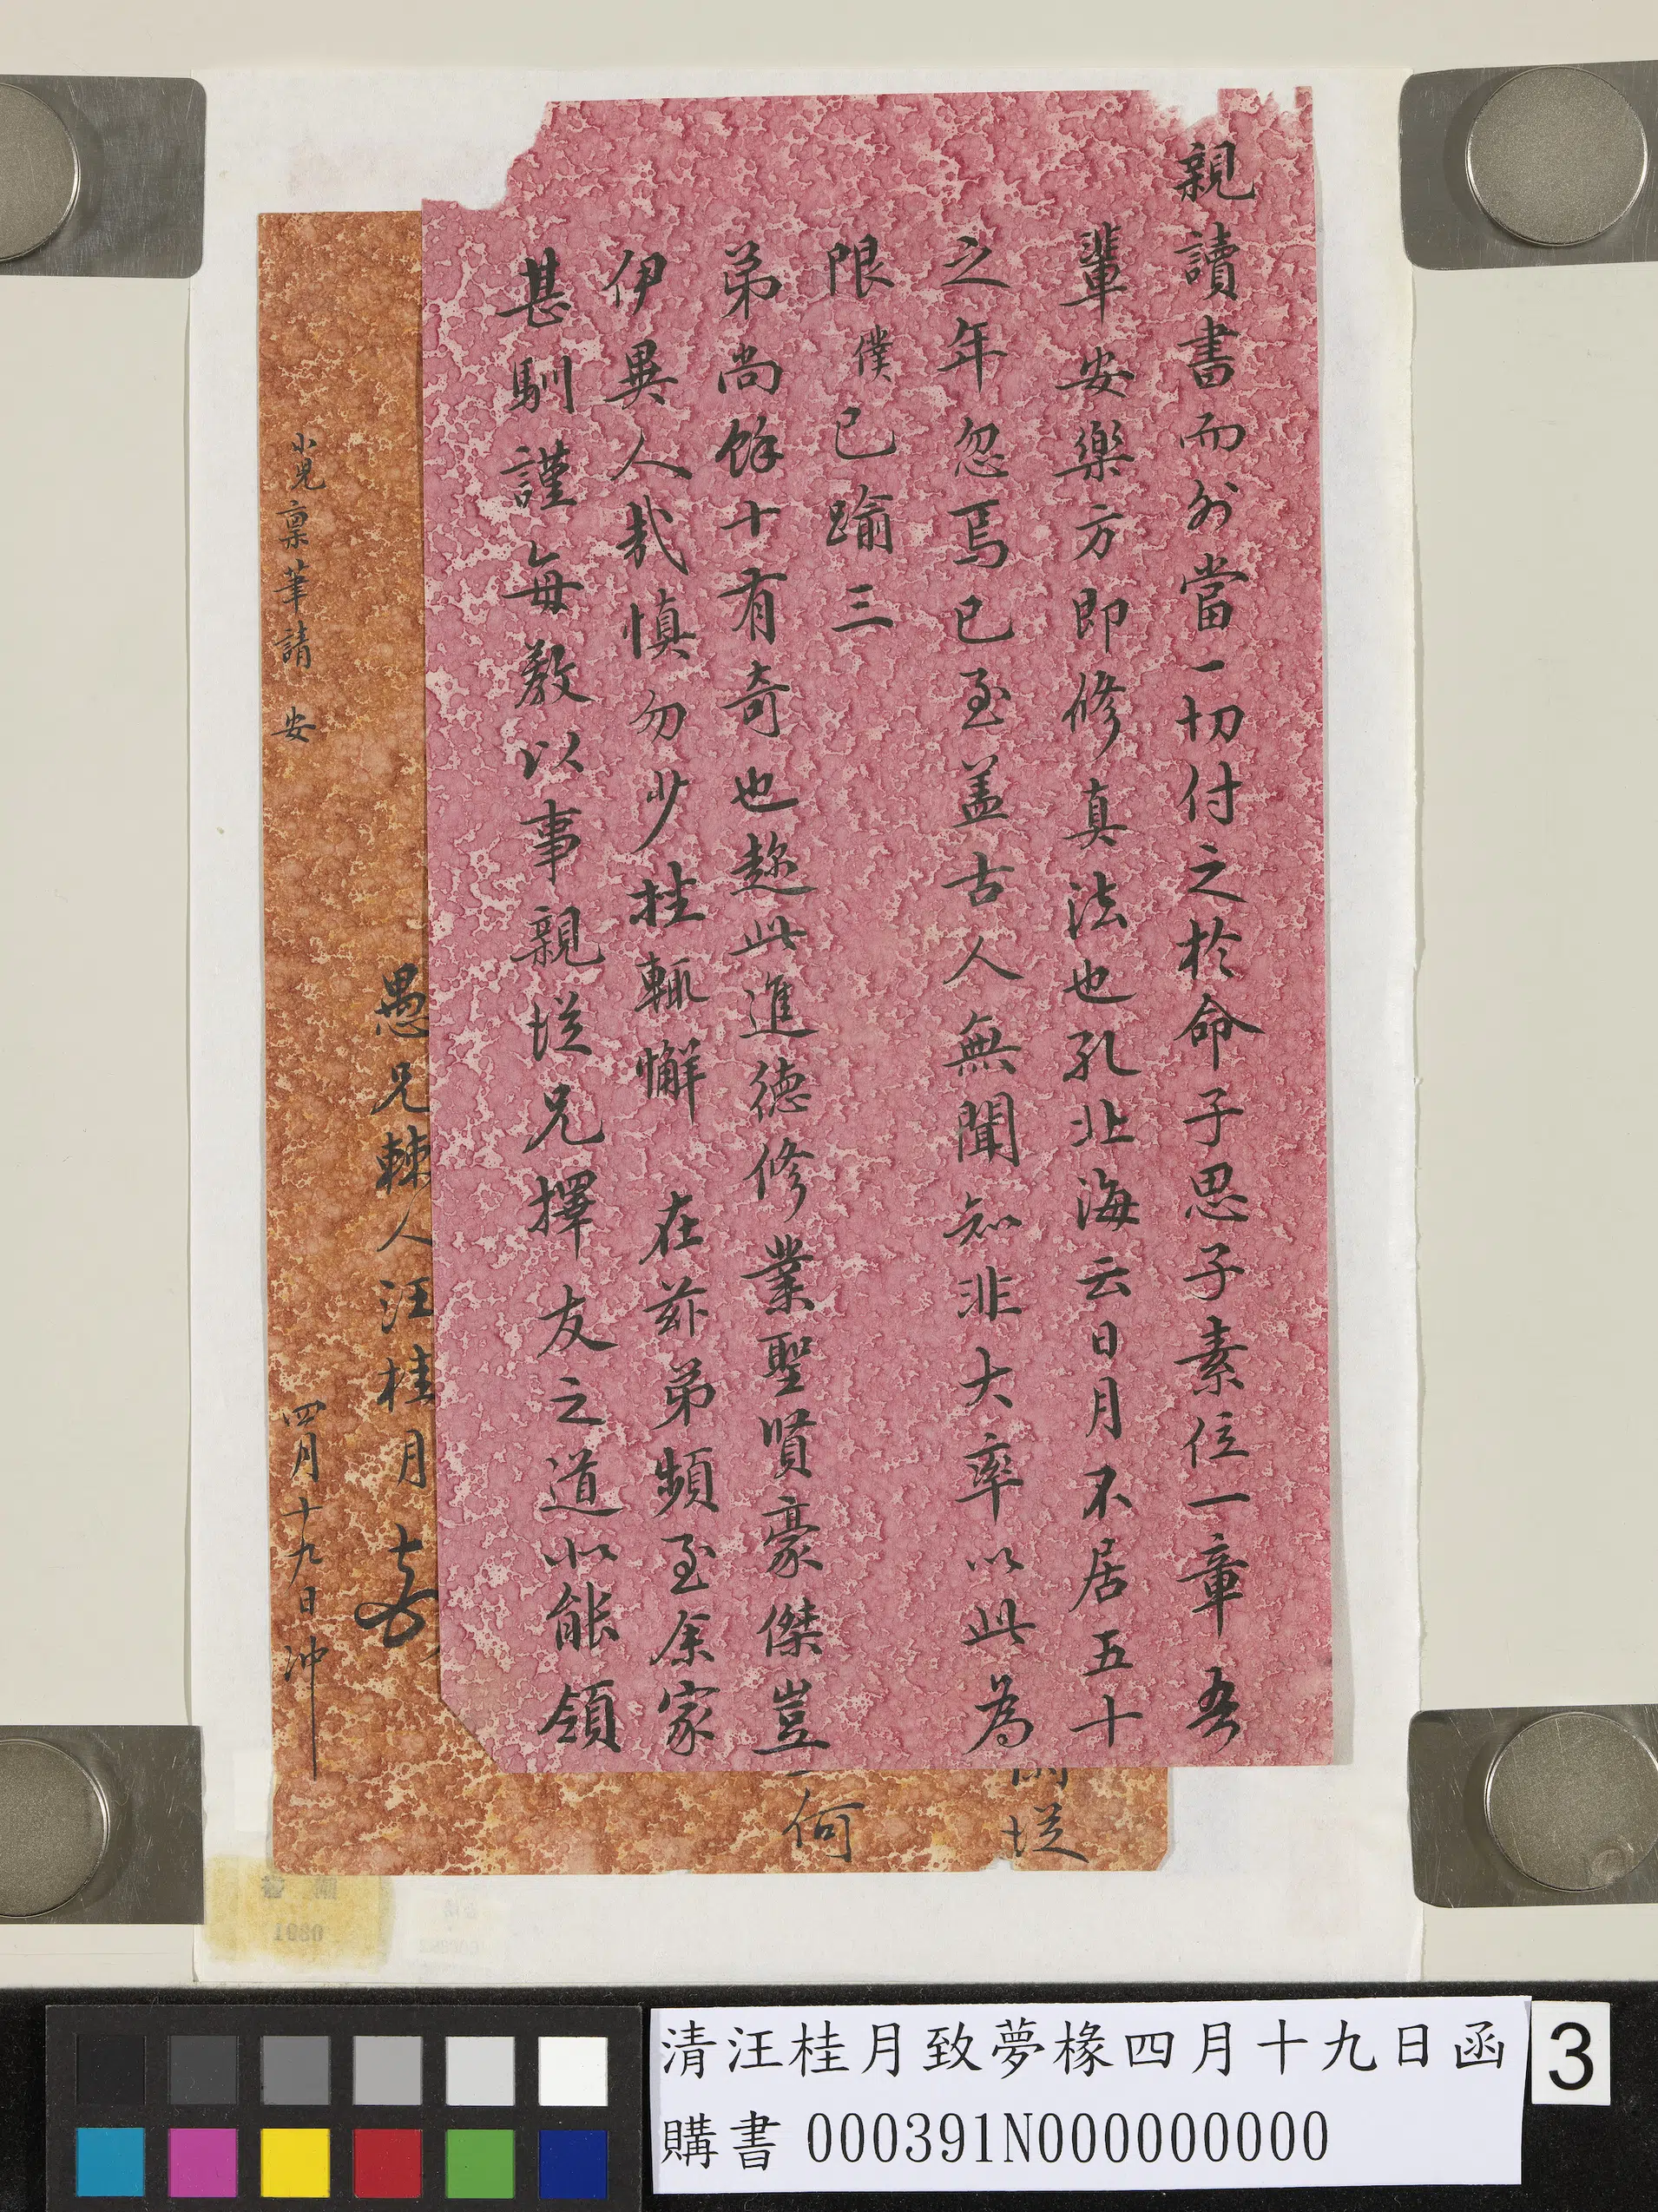 親讀書而外當一切付之於命子思子素位一章吾
輩安樂方即修真法也孔北海云日月不居五十
之年忽焉已至盖古人無聞知非大率以此為
限僕已踰三
弟尚餘十有奇也趂此進德修業聖賢豪傑豈
伊異人哉慎勿少挂輒懈 在茲弟頻至余家
甚馴謹每教以事親從兄擇友之道似能領
從
何
愚兄棘人汪桂月
小兒稟筆請 安
四月十九日沖
清汪桂月致夢椽四月十九日函
購書 000391N000000000
3